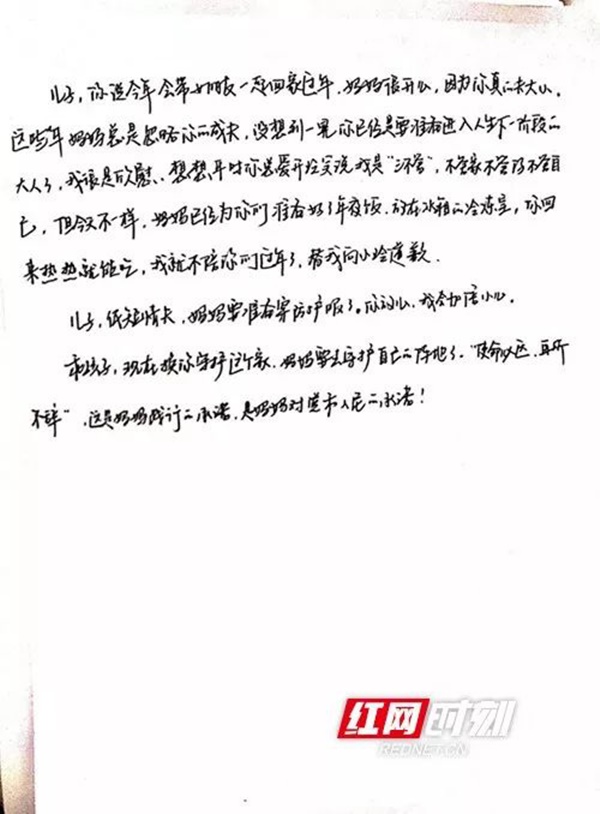 儿子，你说今年会带女朋友一起回家过年，妈妈很开心，因为你真的长大了，
这些年妈妈总是忽略你的成长，没想到一晃你已经是要准备进入人生下一阶段的
大人了，我很是欣慰、想想平时你总爱开玩笑说我是“三不管”，不管家不管你不管自
己，但今天不一样，妈妈已经为你们准备好了年夜饭，放在冰箱的冷冻室，你回
来热热就能吃，我就不陪你们过年了，替我向小玲道歉.
儿子，纸短情长，妈妈要准备穿防护服了。你放心，我会加倍小心.
乖孩子，现在换你守护这个家，妈妈要去守护自己的阵地了，“使命必达，在所
不辞”，这是妈妈践行的承诺，是妈妈对党和人民的承诺！
红网时刻
REDNET.CN